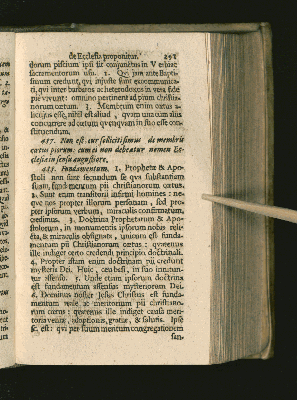 de Ecclesia proponitur. 291
dorum piscium ipsi sit conjunctus in Verbi &
sacramentorum usu. 2. Qui jam ante Bapti-
smum credunt, qui, injuste sunt excommunica-
ti, qui inter barbaros ac heterodoxos in vera fide
pie vivunt: omnino pertinent ad pium christia-
norum cœtum. 3. Membrum enim cœtus a-
licujus esse, nihil est aliud, quam una cum aliis
concurrere ad cœtum quemquam in suo esse con-
stituendum.
437. Non est cur sollicitissimus de membris
cœtus piorum: cum ei non debeatur nomen Ec-
clesiæ in sensu augustiore.
438. Fundamentum. 1. Prophetæ & Apo-
stoli non sunt secundum se qvà substantiam
suam, fundamentum pii christianorum cœtus.
2. Sunt enim transitorii infirmi homines: ne-
que nos propter illorum personam, sed pro-
pter ipsorum verbum, miraculis confirmatum,
credimus. 3. Doctrina Prophetarum & Apo-
stolorum, in monumentis ipsorum nobis reli-
cta, & miraculis obsignata, unicum est funda-
mentum pii Christianorum cœtus: quatenus
ille indiget certo credendi principio doctrinali.
4. Propter istum enim doctrinam pii credunt
mysteria Dei. Huic, ceu basi, in suo innitun-
tur assensu. 5. Unde etiam ipsorum doctrina
est fundamentum assensus mysteriorum Dei.
6. Dominus noster Jesus Christus est funda-
mentum reale ac meritorium pii christiano-
rum cœtus: quatenus ille indiget causa meri-
toria veniæ, adoptionis, gratiæ, & salutis. Ipse
sc. est: qvi per suum meritum congregationem
san-